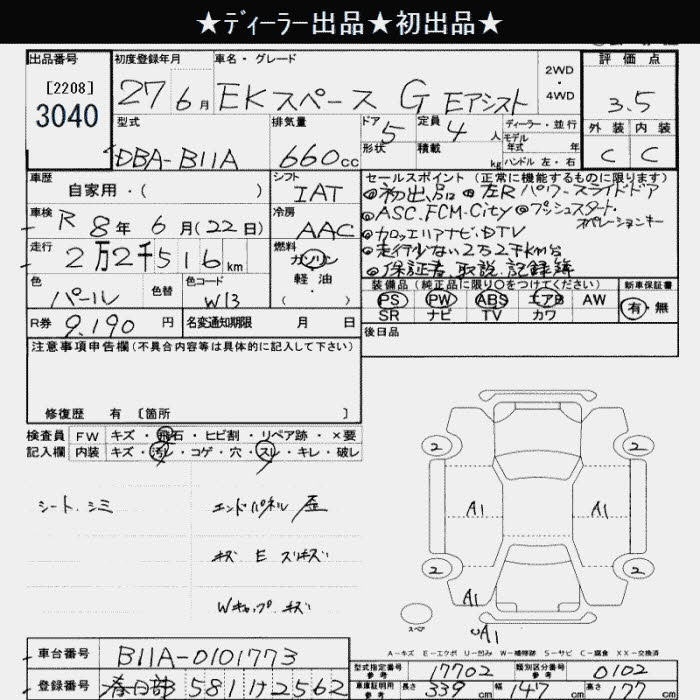 ★ディーラー出品★初出品★
出品番号
[2208]
3040
初度登録年月
27 6月
車名・グレード
EKスペース G Eアシスト
2WD
・
4WD
評価点
3.5
外装 内装
C C
型式
DBA-B11A
排気量
660cc
ドア 5
形状
定員 4人
積載 kg
ディーラー・並行
モデル
年式 年
ハンドル 左・右
車歴
自家用・( )
シフト
IAT
セールスポイント(正常に機能するものに限ります)
◎初出品 ◎左Rパワースライドドア
◎ASC.FCM-City ◎プッシュスタート・
オペレーションキー
◎カロッツェリアナビ.DTV
◎走行少ない2万2千km台
◎保証書 取説 記録簿
車検
R 8年 6月(22日)
冷房
AAC
走行
2万2千516km
燃料
ガソリン
軽油
( )
色
パール
色替
色コード
W13
装備品(純正品に限り○をつけてください)
PS PW ABS エアB AW
SR ナビ TV カワ
新車保証書
有・無
R券 9,190円
名変通知期限 月 日
後日品
注意事項申告欄(不具合内容等は具体的に記入して下さい)
修復歴 有 [箇所 ]
検査員 FW キズ・飛石・ヒビ割・リペア跡・×要
記入欄 内装 キズ・汚レ・コゲ・穴・スレ・キレ・破レ
シート.シミ
エンドパネル 歪
キズ E スリキズ
Wキャップ キズ
2 2
A1 A1
2 2
A1
A1
スペア
A-キズ E-エクボ U-凹み W-補修跡 S-サビ C-腐食 XX-交換済
車台番号 B11A-0101773
登録番号 春日部 581 け 2562
型式指定番号
参考
17702
類別区分番号
参考
0102
車庫証明用
参考
長さ 339cm 幅 147cm 高さ 177cm